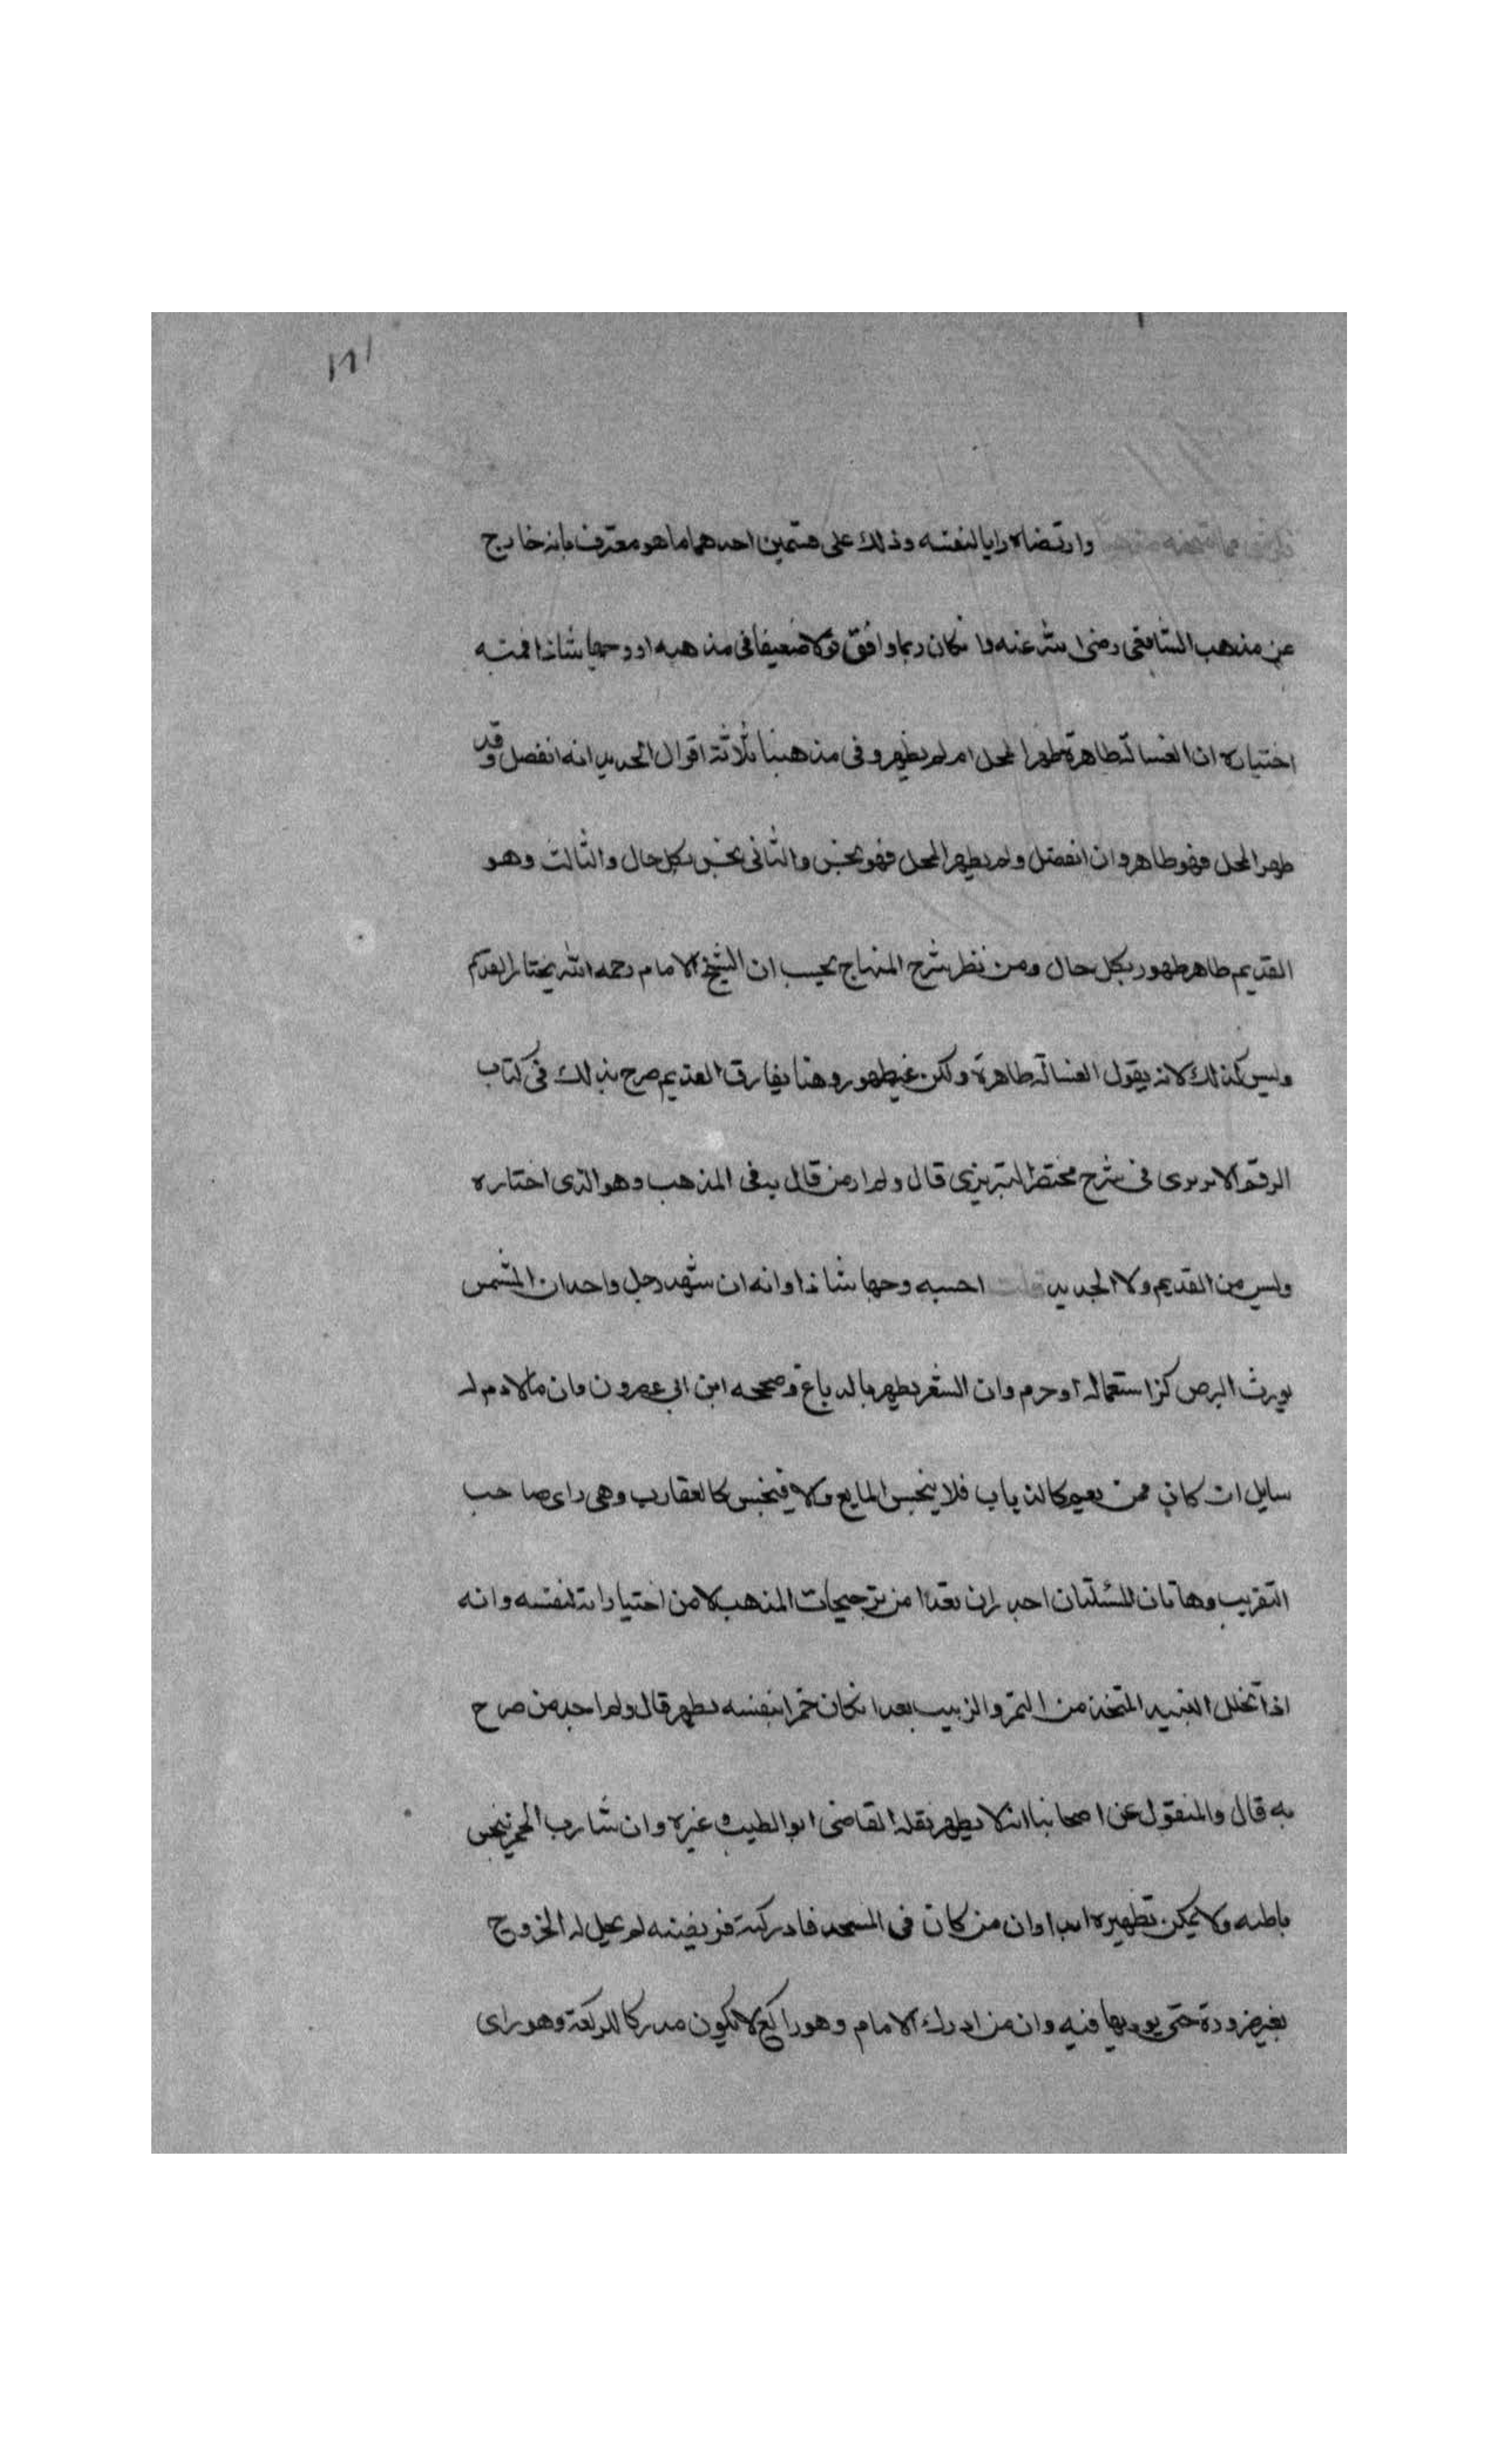 ١٧١
وارتضاه رايا لنفسه وذلك على قسمين احدهما ما هو معترف بانه خارج
عن مذهب الشافعي رضي الله عنه وان كان ربما وافق قولا ضعيفا في مذهبه او وجها شاذا فمنه
اختياره ان الغسالة طاهرة طهر المحل ام لم يطهر وفي مذهبنا ثلاثة اقوال الجديد انه انفصل وقد
طهر المحل فهو طاهر وان انفصل ولم يطهر المحل فهو نجس والثاني نجس بكل حال والثالث وهو
القديم طاهر طهور بكل حال ومن نظر شرح المنهاج يحسب ان الشيخ الامام رحمه الله يختار القديم
وليس كذلك لانه يقول الغسالة طاهرة ولكن غير طهور وهنا يفارق القديم صرح بذلك في كتاب
الرقم الابريزي في شرح مختصر التبريزي قال ولم ار من قال به في المذهب وهو الذي اختاره
وليس من القديم ولا الجديد قلت احسبه وجها شاذا وانه ان شهد رجل واحد ان المشمس
يورث البرص كره استعماله او حرم وان الشعر يطهر بالدباغ وصححه ابن ابي عصرون وان ما لا دم له
سايل ان كان ممن يعم كالذباب فلا ينجس المايع والا فينجس كالعقارب وهي راي صاحب
التقريب وهاتان المسئلتان اجدر ان تعدا من ترجيحات المذهب لا من اختياراته لنفسه وانه
اذا تخلل النبيذ المتخذ من التمر والزبيب بعد ان كان خمرا بنفسه يطهر قال ولم اجد من صرح
به قال والمنقول عن اصحابنا انه لا يطهر نقله القاضي ابو الطيب وغيره وان شارب الخمر نجس
باطنه ولا يمكن تطهيره ابدا وان من كان في المسجد فادركته فريضته لم يحل له الخروج
بغير ضرورة حتى يوديها فيه وان من ادرك الامام وهو راكع لا يكون مدركا للركعة وهو راي